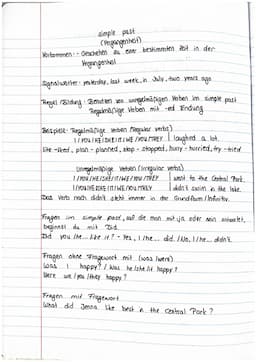 simple past
(Vergangenheit)
Vorkommen: - Geschehen zu einer bestimmten Zeit in der
Vergangenheit
Signalwörter: yesterday, last week, in July, two years ago
Regel / Bildung: Benutzen von unregelmäßigen Verben im simple past
Regelmäßige Verben mit -ed Endung
Beispiele: Regelmäßige Verben (Regular verbs)
I / YOU / HE / SHE / IT / WE / YOU / THEY | laughed a lot.
like - liked, plan - planned, stop - stopped, hurry - hurried, try - tried
Unregelmäßige Verben (irregular verbs)
I / YOU / HE / SHE / IT / WE / YOU / THEY | went to the Central Park.
I / YOU / HE / SHE / IT / WE / YOU / THEY | didn't swim in the lake.
Das Verb nach didn't steht immer in der Grundform / Infinitiv.
Fragen im simple past, auf die man mit ja oder nein antwortet,
beginnst du mit Did.
Did you / he... like it? - Yes, I / he... did. / No, I / he... didn't.
Fragen ohne Fragewort mit (was / were)
Was I happy? / Was he / she / it happy?
Were we / you / they happy?
Fragen mit Fragewort
What did Jenna like best in the Central Park?